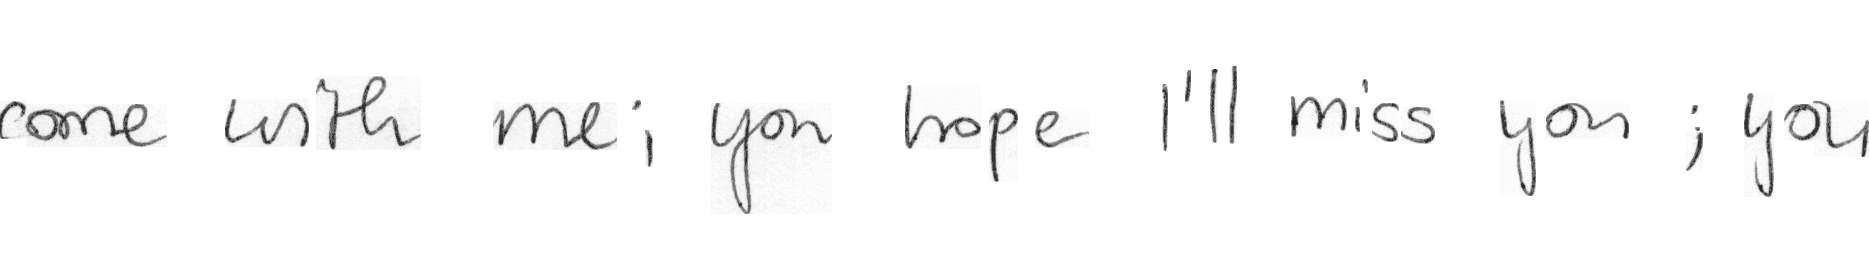 come with me; you hope I'll miss you ; you